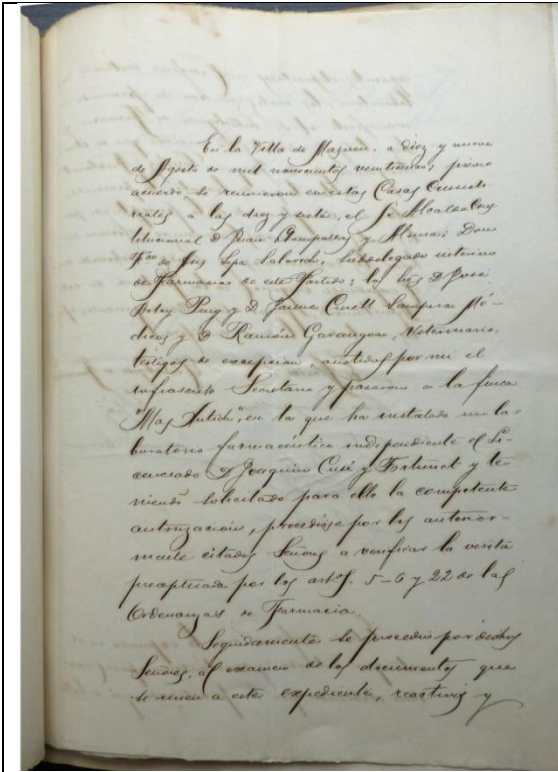 En la Villa de Masnou, a diez y nueve
de Agosto de mil novecientos veintiuno; previo
acuerdo se reunieron en estas Casas Consisto-
riales a las diez y siete, el Sr Alcalde Cons
titucional D Juan y Alsina; Don
Fco de Subdelegado interino
de Farmacia de este Partido; los Srs D José
Botey Puig y D Jaime Sampera Mé-
dicos y D Ramón Veterinario,
testigos de excepción, asistidos por mi el
infrascrito Secretario y pasaron a la finca
"Mas Antich", en la que ha instalado un la-
boratorio farmacéutico independiente el Li-
cenciado D Joaquin Cusí y Fortunet y te-
niendo solicitado para ello la competente
autorización, procedióse por los anterior-
mente citados Señores a verificar la visita
preceptuada por los artos. 5-6 y 22 de las
Ordenanzas de Farmacia.
Seguidamente se procedió por dichos
Señores, al examen de los documentos que
se unen a este expediente, reactivos y